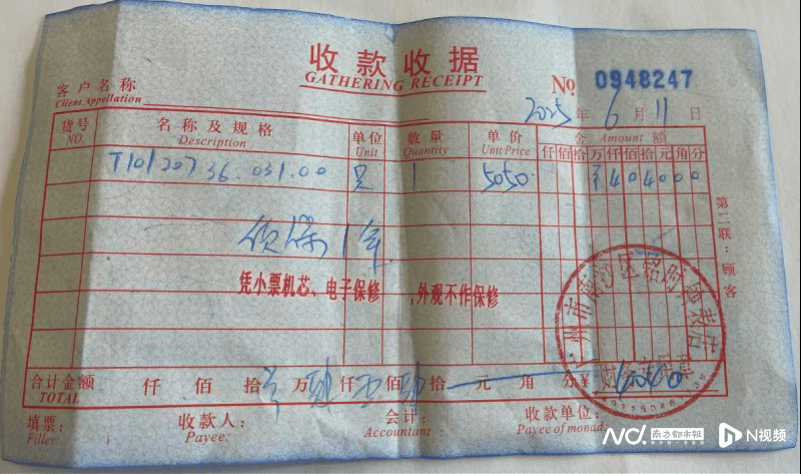 收款收据
GATHERING RECEIPT
№ 0948247
客户名称
Client Appellation
2025年6月11日
货号 名称及规格 单位 数量 单价 金 Amount 额
NO. Description Unit Quantity Unit Price 仟佰拾万仟佰拾元角分
T101207 36.031.00 只 1 5050 ¥404000
保 1年
凭小票机芯、电子保修,外观不作保修
第二联:顾客
合计金额 仟 佰 拾 万 仟 佰 拾 元 角 分
TOTAL
填票: 收款人: 会计: 收款单位:
Filler: Payee: Accountant: Payee of monad:
广州市南沙区
南方都市报
N视频